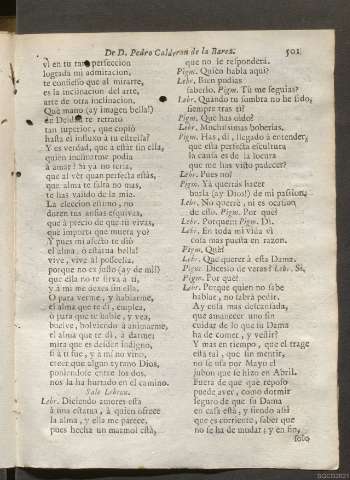 De D. Pedro Calderon de la Barca. 501
vì en tu rara perfeccion
lograda mi admiracion,
te confiesso que al mirarte,
es la inclinacion del arte,
arte de otra inclinacion.
Què mano (ay imagen bella!)
de Deidad te retrato
tan superior, que copiò
hasta el influxo à tu estrella?
Y es verdad, que à estàr sin ella,
quien inclinarme podia
à amar? si ya no seria,
que al vèr quan perfecta estàs,
que alma te falta no mas,
te has valido de la mia.
La eleccion estimo, no
dozen tus ansias esquivas,
que à precio de que tu vivas,
què importa que muera yo?
Y pues mi afecto te diò
el alma, ò estatua bella!
vive, vive al posseela,
porque no es justo (ay de mi!)
que ella no te sirva à ti,
y à mi me dexa sin ella.
O para verme, y hablarme,
el alma que te dì, emplea,
ò para que te hable, y vea,
buelve, bolviendo à animarme,
el alma que te dì, à darme;
mira que es deidèn indigno,
si à ti fue, y à mì no vino,
creer que algun tyrano Dios,
poniendose entre los dos,
nos la ha hurtado en el camino.
Sale Lebron.
Lebr. Diciendo amores està
à una estatua, à quien ofrece
la alma, y ella me parece,
pues hecha un marmol està,
que no le responderà.
Pigm. Quièn habla aqui?
Lebr. Bien podias
saberlo. Pigm. Tù me seguias?
Lebr. Quando tu sombra no he sido,
siempre tras ti?
Pigm. Què has oido?
Lebr. Muchissimas boberias.
Pigm. Has, di, llegado à entender,
que esta perfecta escultura
la causa es de la locura
que me has visto padecer?
Lebr. Pues no?
Pigm. Yà querràs hacer
burla (ay Dios!) de mi passion,
Lebr. No querrè, ni es ocasion
de esso. Pigm. Por què?
Lebr. Porque::- Pigm. Di.
Lebr. En toda mi vida vi
cosa mas puesta en razon.
Pigm. Què?
Lebr. Que querer à esta Dama.
Pigm. Diceslo de veras? Lebr. Si,
Pigm. Por què?
Lebr. Porque quien no sabe
hablar, no sabrà pedir.
Ay cosa mas descansada,
que amanecer uno sin
cuidar de lo que su Dama
ha de comer, y vestir?
Y mas en tiempo, que el trage
està tal, que sin mentir,
no se usa por Mayo el
jubon que se hizo en Abril.
Fuera de que què reposo
puede aver, como dormir
seguro de que su Dama
en casa està, y siendo assi
que es corriente, saber que
no se ha de mudar; y en fin,
solo